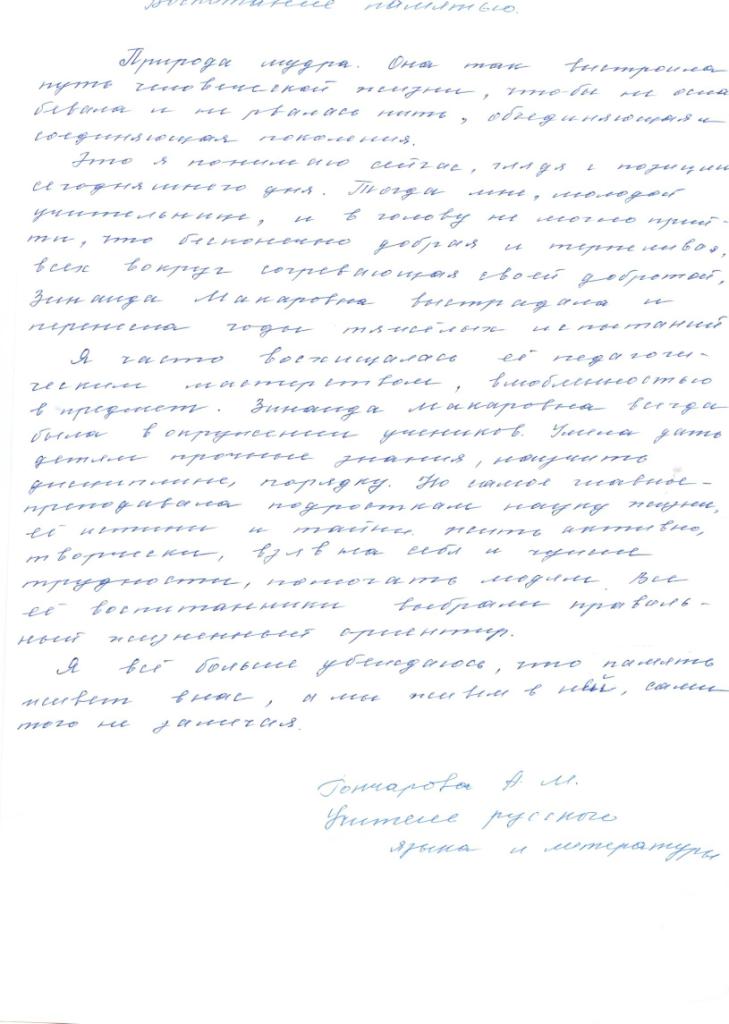 Воспитание памятью.
Природа мудра. Она так выстроила
путь человеческой жизни, чтобы не осла
бевала и не рвалась нить, объединяющая и
соединяющая поколения.
Это я понимаю сейчас, глядя с позиции
сегодняшнего дня. Тогда мне, молодой
учительнице, и в голову не могло прий-
ти, что бесконечно добрая и терпеливая,
всех вокруг согревающая своей добротой,
Зинаида Макаровна выстрадала и
перенесла годы тяжёлых испытаний
Я часто восхищалась её педагоги-
ческим мастерством, влюбленностью
в предмет. Зинаида Макаровна всегда
была в окружении учеников. Умела дать
детям прочные знания, научить
дисциплине, порядку. Но самое главное -
преподавала подросткам науку жизни,
её истины и тайны. Жить активно,
творчески, взяв на себя и чужие
трудности, помогать людям. Все
её воспитанники выбрали правиль-
ный жизненный ориентир.
Я всё больше убеждаюсь, что память
живет в нас, а мы живём в ней, сами
того не замечая.
Гончарова А. М.
Учитель русского
языка и литературы